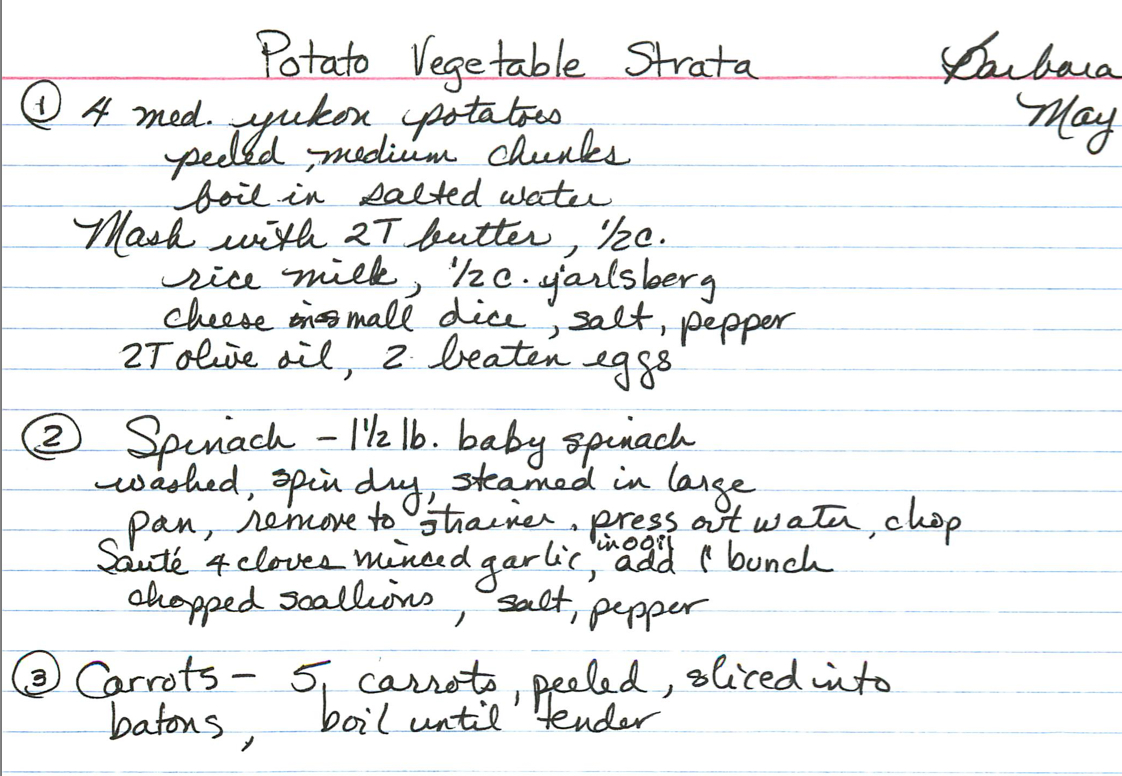 Potato Vegetable Strata Barbara
May
① 4 med. yukon potatoes
peeled, medium chunks
boil in salted water
Mash with 2T butter, 1/2c.
rice milk, 1/2c. jarlsberg
cheese in small dice, salt, pepper
2T olive oil, 2 beaten eggs
② Spinach - 1 1/2 lb. baby spinach
washed, spin dry, steamed in large
pan, remove to strainer, press out water, chop
Sauté 4 cloves minced garlic, in o oil add 1 bunch
chopped scallions, salt, pepper
③ Carrots - 5, carrots, peeled, sliced into
batons, boil until tender